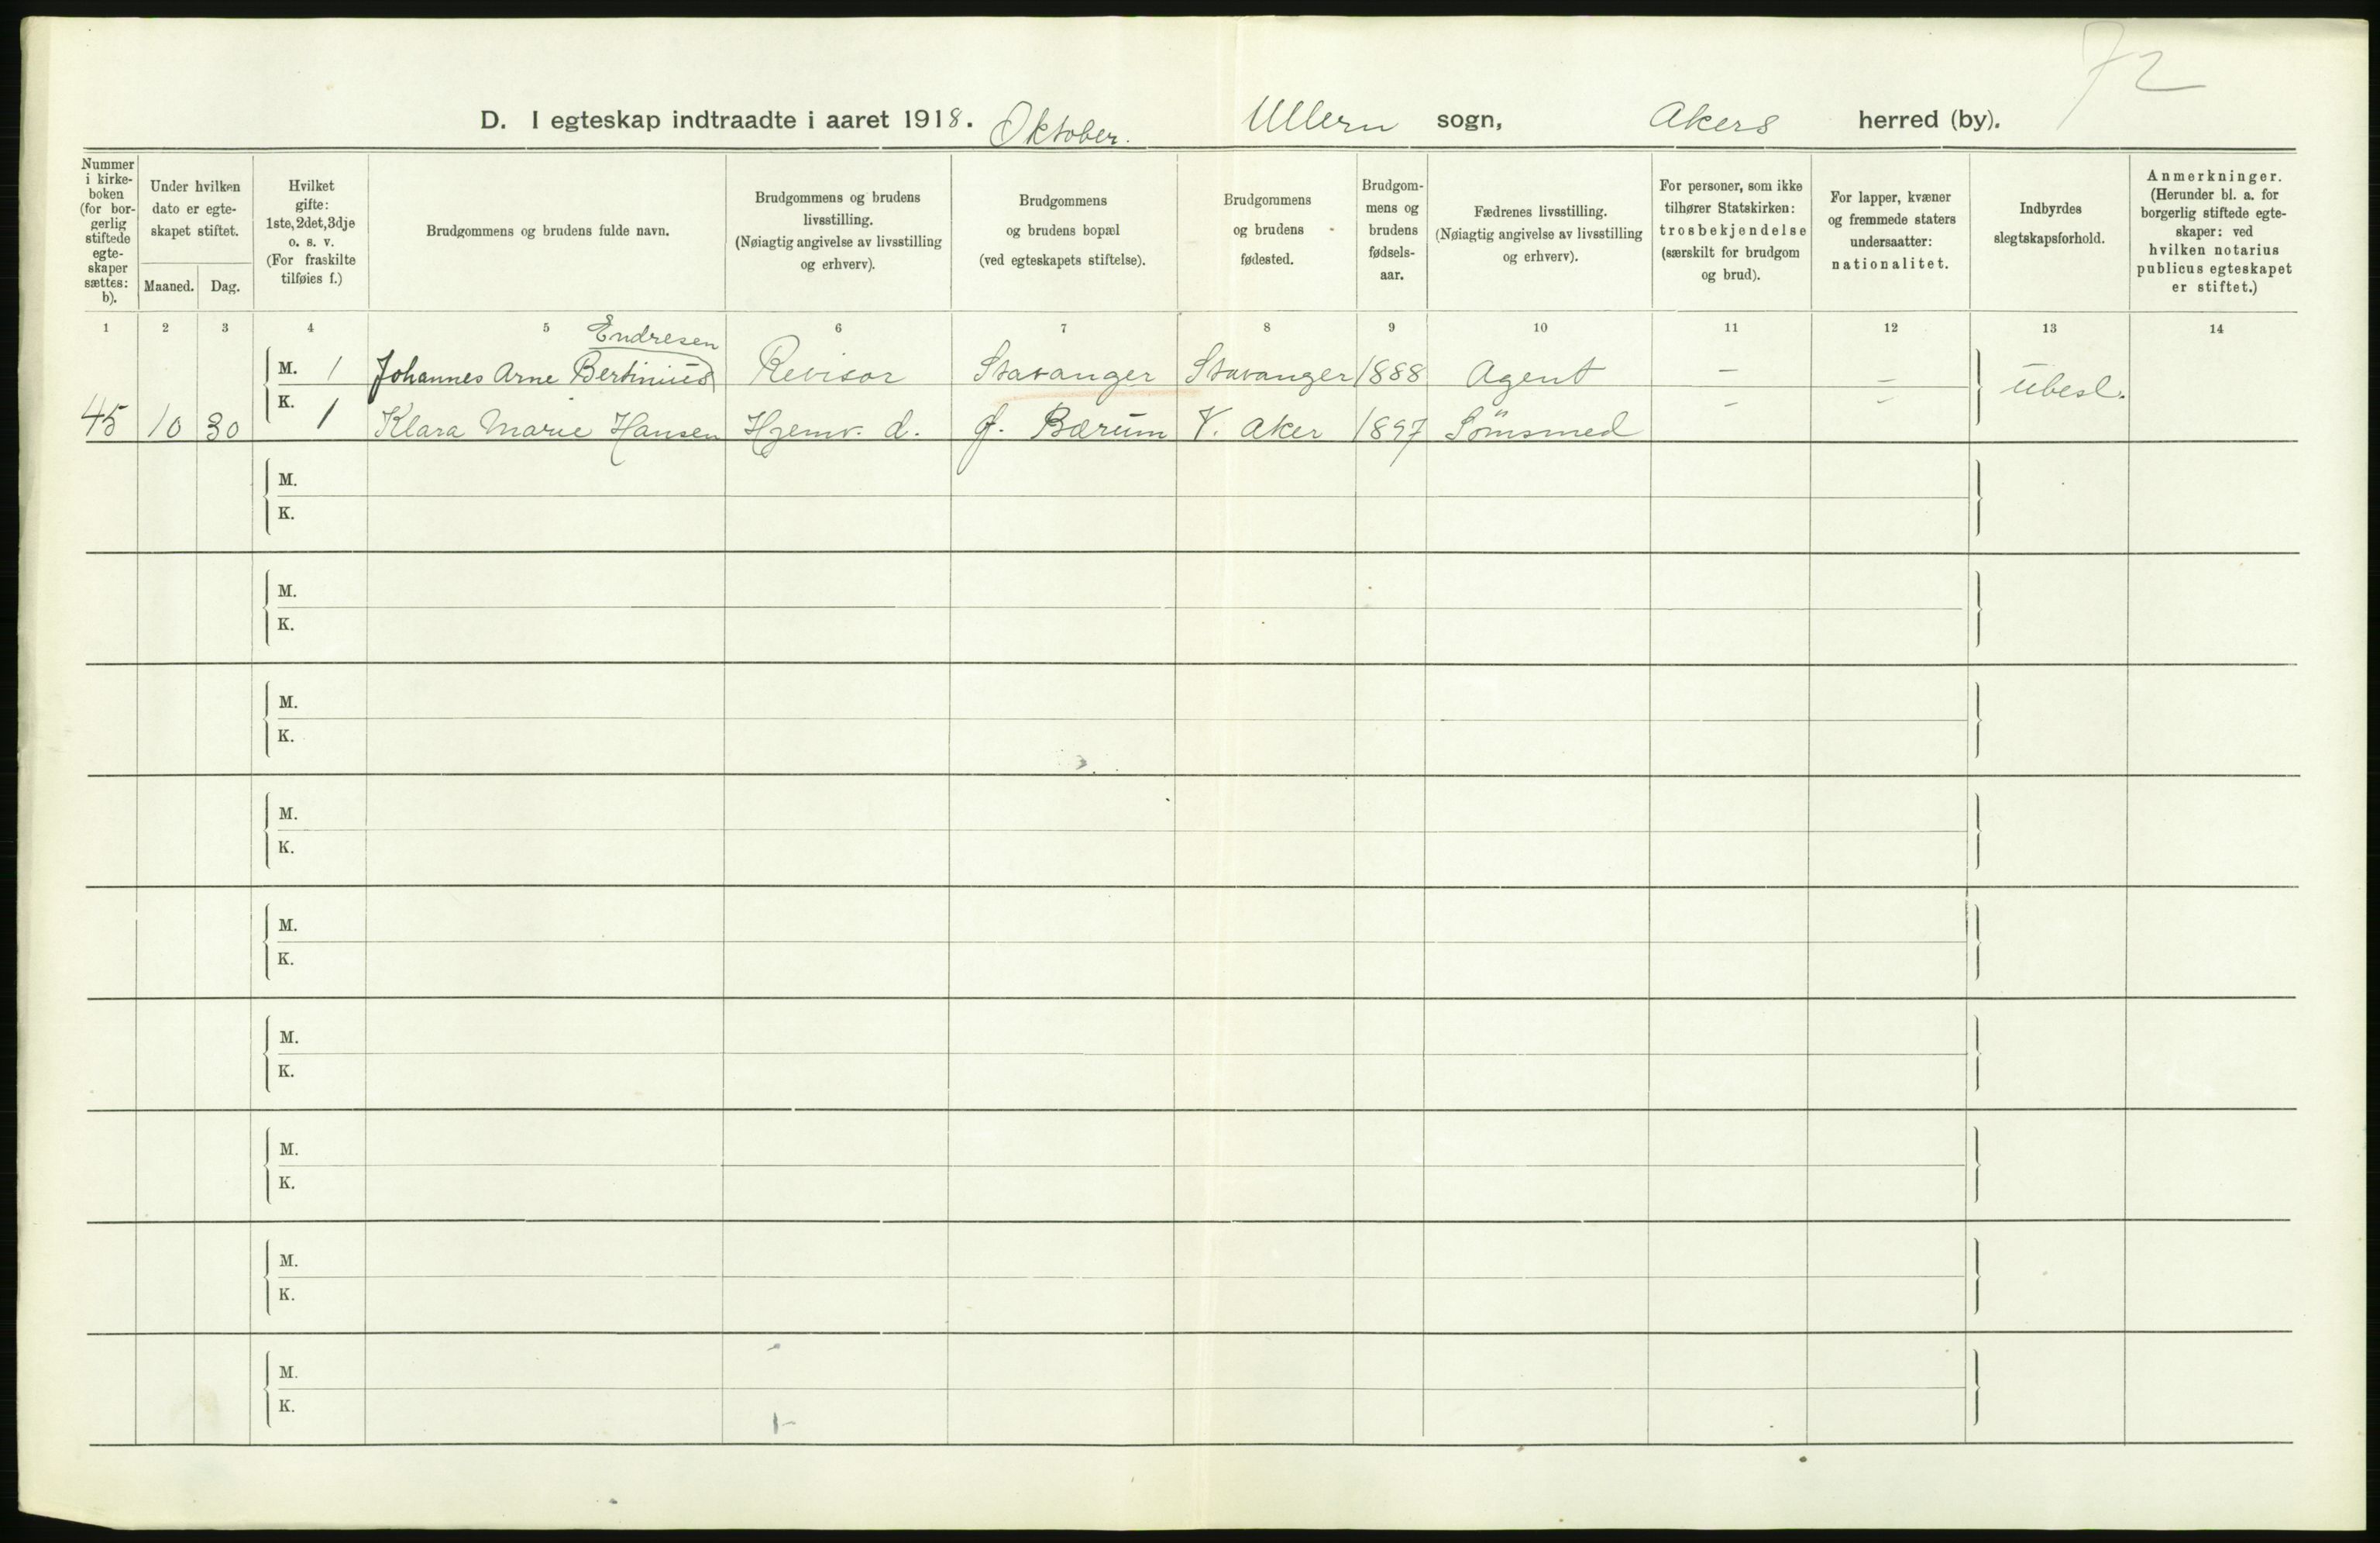 72
D. I egteskap indtraadte i aaret 1918. Oktober. Ullern sogn, Akers herred (by).
Nummer i kirke- boken (for bor- gerlig stiftede egte- skaper sættes: b).
Under hvilken dato er egte- skapet stiftet.
Maaned. Dag.
Hvilket gifte: 1ste, 2det, 3dje o. s. v. (For fraskilte tilføies f.)
Brudgommens og brudens fulde navn.
Brudgommens og brudens livsstilling. (Nøiagtig angivelse av livsstilling og erhverv).
Brudgommens og brudens bopæl (ved egteskapets stiftelse).
Brudgommens og brudens fødested.
Brudgom- mens og brudens fødsels- aar.
Fædrenes livsstilling. (Nøiagtig angivelse av livsstilling og erhverv).
For personer, som ikke tilhører Statskirken: trosbekjendelse (særskilt for brudgom og brud).
For lapper, kvæner og fremmede staters undersaatter: nationalitet.
Indbyrdes slegtskapsforhold.
Anmerkninger. (Herunder bl. a. for borgerlig stiftede egte- skaper: ved hvilken notarius publicus egteskapet er stiftet.)
1 2 3 4 5 6 7 8 9 10 11 12 13 14
Endresen
M. 1 Johannes Arne Bertinius Revisor Stavanger Stavanger 1888 Agent – – Ubesl.
45 10 30 K. 1 Klara Marie Hansen Hjemv. d. Ø. Bærum V. Aker 1897 Sömsmed – –
M.
K.
M.
K.
M.
K.
M.
K.
M.
K.
M.
K.
M.
K.
M.
K.
M.
K.